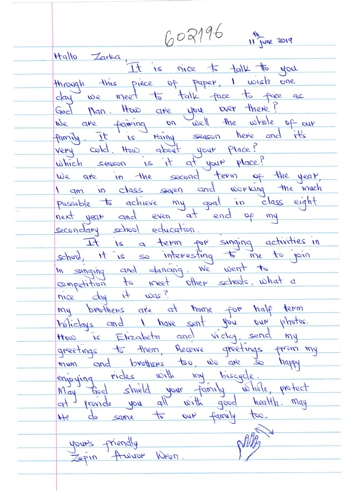 602196
11th June 2019
Hallo Zarka,
It is nice to talk to you
through this piece of paper, I wish one
day we meet to talk face to face as
God Plan. How are you over there?
We are fairing on well the whole of our
family. It is rainy season here and it's
very cold. How about your place?
which season is it at your place?
We are in the second term of the year,
I am in class seven and working the much
possible to achieve my goal in class eight
next year and even at end of my
secondary school education.
It is a term for singing activities in
school, it is so interesting to me to join
in singing and dancing. We went to
competition to meet other schools, what a
nice day it was?
my brothers are at home for half term
holidays and I have sent you our photos.
How is Elizabeta and vicky, send my
greetings to them, Receive greetings from my
mum and brothers too we are so happy
enjoying rides with my biscycle.
May God shield your family whole, protect
at provide you all with good health. may
He do same to our family too.
yours friendly
Zepin Awuor